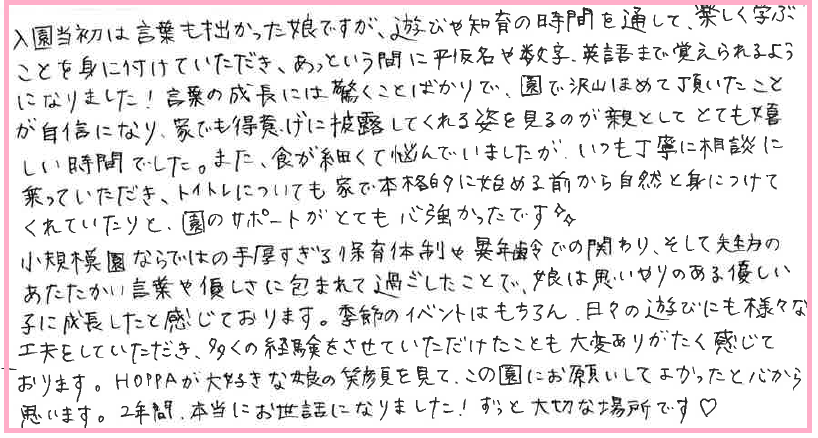 入園当初は言葉も拙かった娘ですが、遊びや知育の時間を通して、楽しく学ぶ
ことを身に付けていただき、あっという間に平仮名や数字、英語まで覚えられるよう
になりました！言葉の成長には驚くことばかりで、園で沢山ほめて頂いたこと
が自信になり、家でも得意げに披露してくれる姿を見るのが親としてとても嬉
しい時間でした。また、食が細くて悩んでいましたが、いつも丁寧に相談に
乗っていただき、トイトレについても家で本格的に始める前から自然と身につけて
くれていたりと、園のサポートがとても心強かったです✧✧
小規模園ならではの手厚すぎる保育体制や異年齢での関わり、そして先生方の
あたたかい言葉や優しさに包まれて過ごしたことで、娘は思いやりのある優しい
子に成長したと感じております。季節のイベントはもちろん、日々の遊びにも様々な
工夫をしていただき、多くの経験をさせていただけたことも大変ありがたく感じて
おります。HOPPAが大好きな娘の笑顔を見て、この園にお願いしてよかったと心から
思います。2年間、本当にお世話になりました！ずっと大切な場所です♡